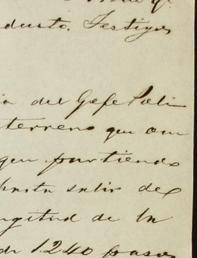 ducto. Testigos
del Gefe Poli
terreno que con
que partiendo
hasta salir del
ngitud de la
de 1240 pasos